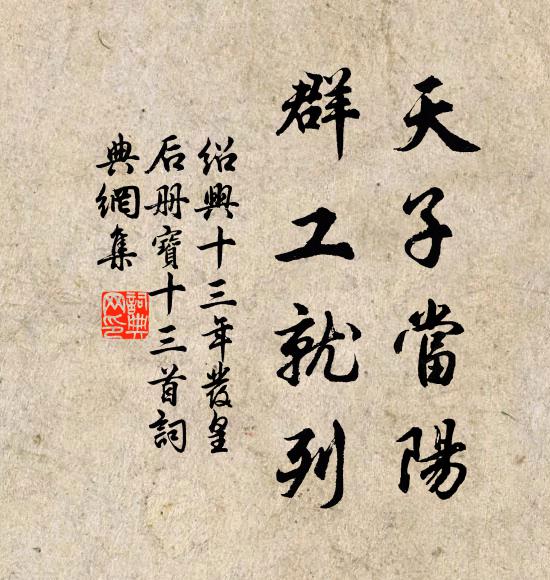 天子當陽
群工就列
紹興十三年發皇
后册寶十三首詞
典網集
詞典网印